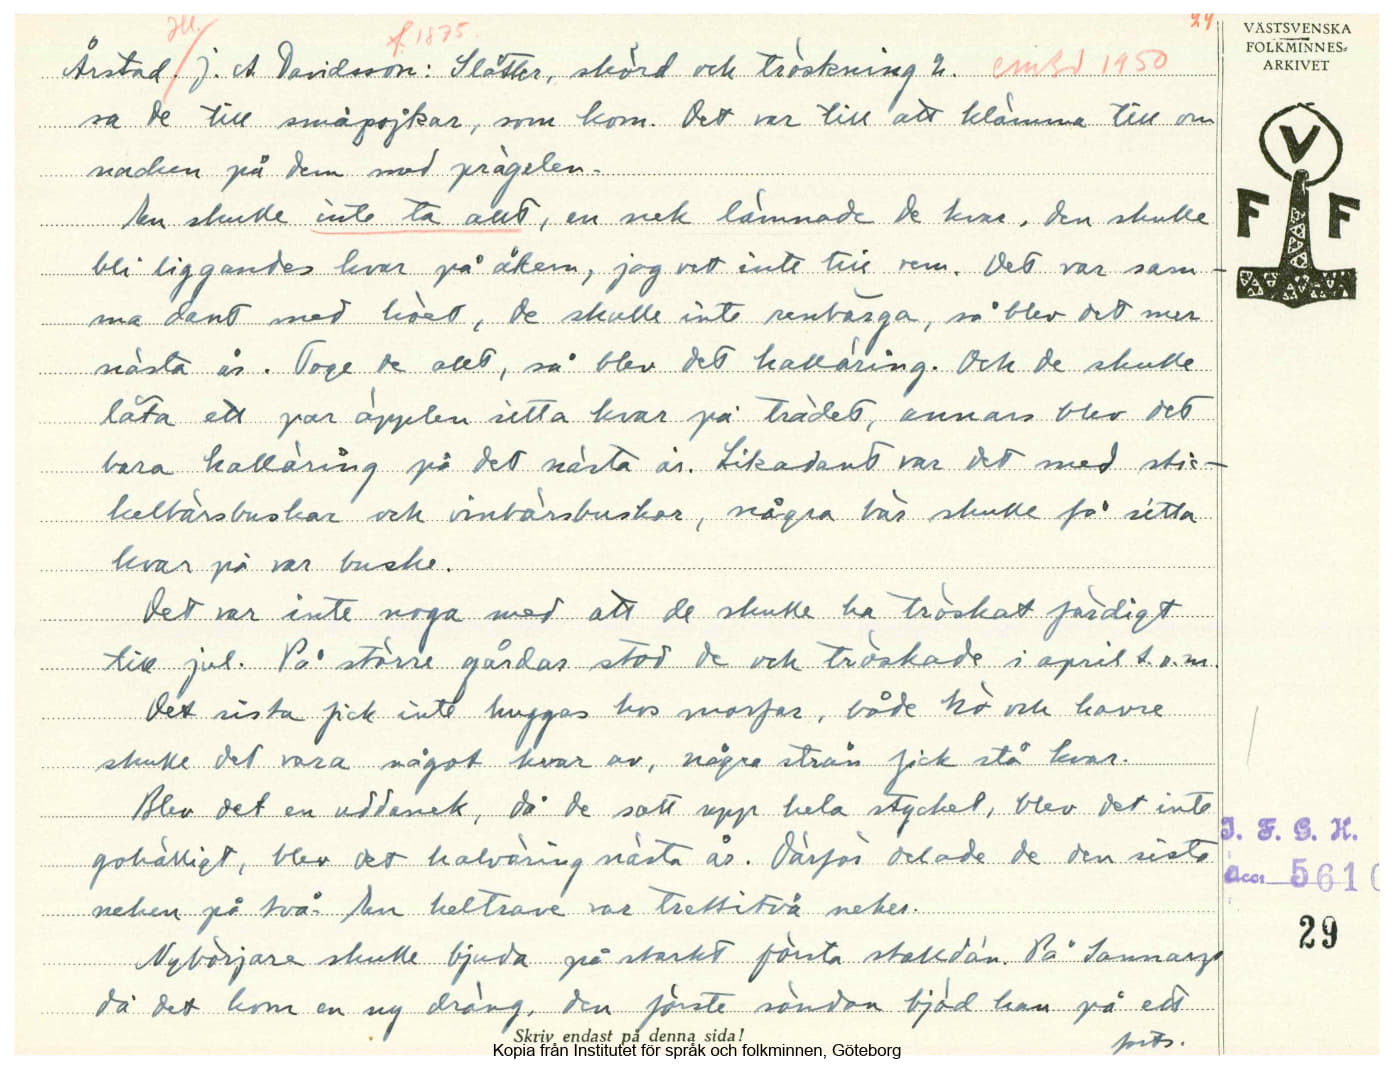 24
VÄSTSVENSKA
FOLKMINNES-
ARKIVET
Hll. f. 1875.
Årstad. J. A. Davidsson: Slåtter, skörd och tröskning 2. 1950
sa de till småpojkar, som kom. Det var till att klämma till om
nacken på dem med prägelen.
En skulle inte ta allt, en nek lämnade de kvar, den skulle
bli liggandes kvar på åkern, jag vet inte till vem. Det var sam-
ma dant med höet, de skulle inte renbärga, så blev det mer
nästa år. Toge de allt, så blev det hallåring. Och de skulle
låta ett par äpplen sitta kvar på trädet, annars blev det
bara hallåring på det nästa år. Likadant var det med stic-
kelbärsbuskar och vinbärsbuskar, några bär skulle få sitta
kvar på var buske.
Det var inte noga med att de skulle ha tröskat färdigt
till jul. På större gårdar stod de och tröskade i april t.o.m.
Det sista fick inte huggas hos morfar, både hö och havre
skulle det vara något kvar av, några strån fick stå kvar.
Blev det en uddanek, då de satt upp hela stycket, blev det inte
gohälligt, blev det halvåring nästa år. Därför delade de den sista
neken på två. En heltrave var trettitvå neker.
Nybörjare skulle bjuda på starkt första stalldán. På Sannarp
då det kom en ny dräng, den förste söndan bjöd han på ett
forts.
V
F F
I. F. G. H.
Acc. 5610
29
Skriv endast på denna sida!
Kopia från Institutet för språk och folkminnen, Göteborg